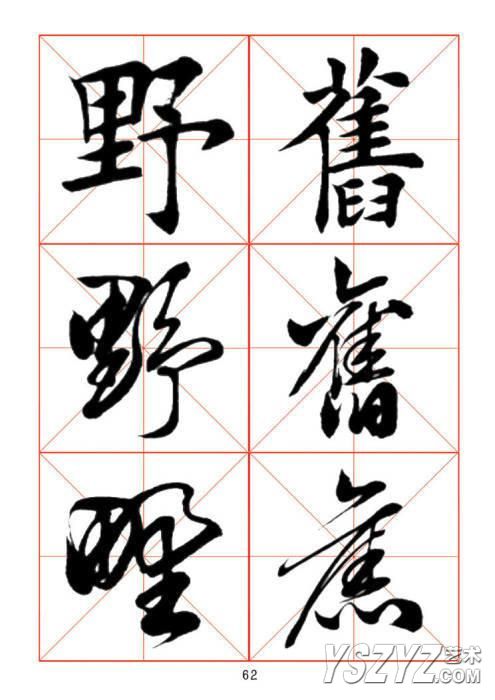 舊舊舊
野野野
62
YSZYZ艺术
.com